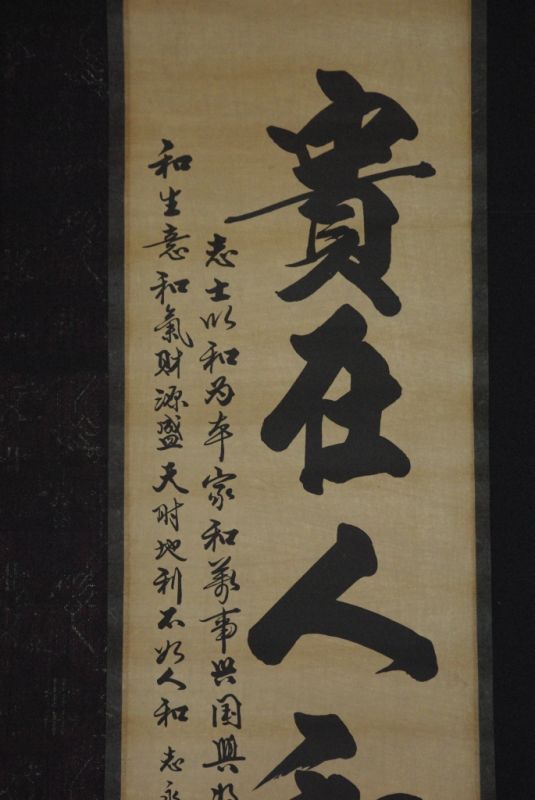 貴在人和
志士以和为本家和萬事兴国興
和生意和氣財源盛天时地利不如人和 志永